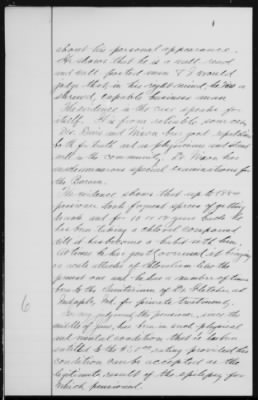 about his personal appearance.
He shows that he is a well read
and well posted man & I would
judge that in his right mind, he was a
shrewd, capable business man.
The evidence in the case speaks for
itself. It is from reliable sources.
Drs. and Mason have good reputation
both for truth and as physicians and stand
well in the community. Dr Mason has
made numerous special examinations for
the Bureau.
The evidence shows that up to 1884
pensioner had frequent spells of getting
and for 10 or 12 years back he
has been taking a chloral compound
till it has become a habit with him.
At times he has gone over and at bringing
on acute attacks of alienation like the
present one and he has a number of times
been to the Sanitarium of Dr Fletcher at
Indianapolis, Ind. for private treatment.
In my judgment the pensioner, since the
middle of June, has been in such physical
and mental condition that he has been
entitled to the rating provided this
condition can be accepted as the
legitimate result of the epilepsy for
which pensioned.
6